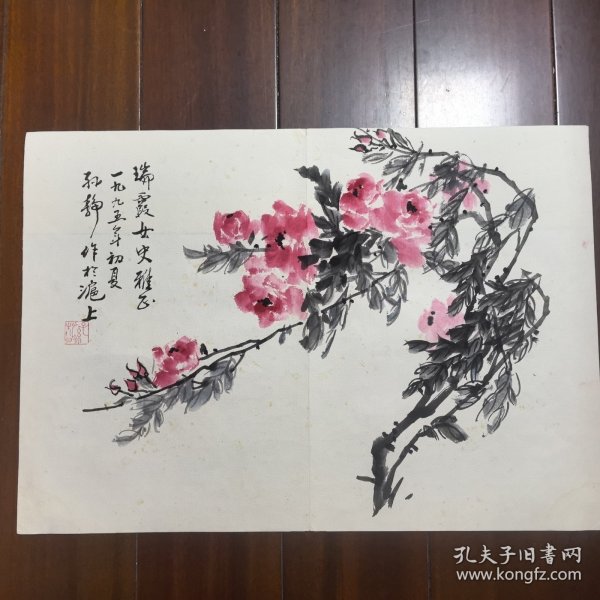 瑞霞女史雅正
一九九五年初夏
静作於滬上
孔夫子旧書网
www.kongfz.com